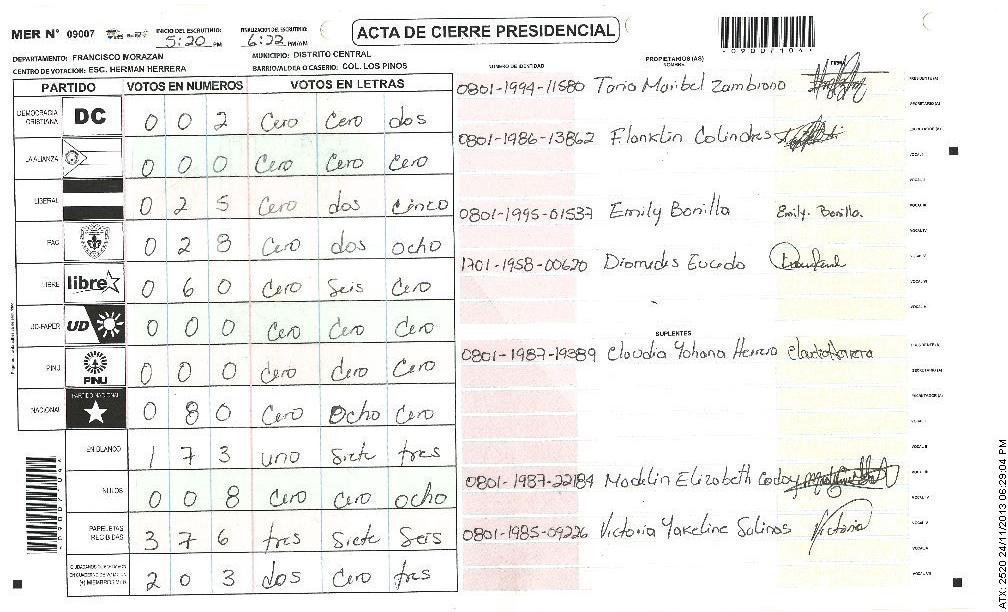 MER N° 09007 INICIO DEL ESCRUTINIO: 5:20 PM FINALIZACION DEL ESCRUTINIO: 6:22 PM/AM
ACTA DE CIERRE PRESIDENCIAL
DEPARTAMENTO: FRANCISCO MORAZAN MUNICIPIO: DISTRITO CENTRAL
CENTRO DE VOTACION: ESC. HERMAN HERRERA BARRIO/ALDEA O CASERIO: COL. LOS PINOS
PARTIDO VOTOS EN NUMEROS VOTOS EN LETRAS
DEMOCRACIA CRISTIANA DC 0 0 2 Cero Cero dos
LA ALIANZA 0 0 0 Cero Cero Cero
LIBERAL 0 2 5 Cero dos Cinco
PAC 0 2 8 Cero dos ocho
LIBRE libre 0 6 0 Cero Seis Cero
UD-FAPER UD 0 0 0 Cero Cero Cero
PINU PINU 0 0 0 Cero Cero Cero
NACIONAL PARTIDO NACIONAL 0 8 0 Cero Ocho Cero
EN BLANCO 1 7 3 uno Siete tres
NULOS 0 0 8 Cero Cero ocho
PAPELETAS RECIBIDAS 3 7 6 tres Siete Seis
2 0 3 dos Cero tres
NUMERO DE IDENTIDAD PROPIETARIOS (AS) NOMBRE FIRMA
0801-1994-11580 Tania Maribel Zambrano
0801-1986-13862 Flanklin Colindres
0801-1995-01537 Emily Bonilla Emily Bonilla
1701-1958-00620 Diomedes Euceda
SUPLENTES
0801-1987-19389 Claudia Yohana Herrera
0801-1987-22184 Madelin Elizabeth Godoy
0801-1985-09226 Victoria Yakeline Salinas Victoria
ATX: 2520 24/11/2013 06:29:04 PM